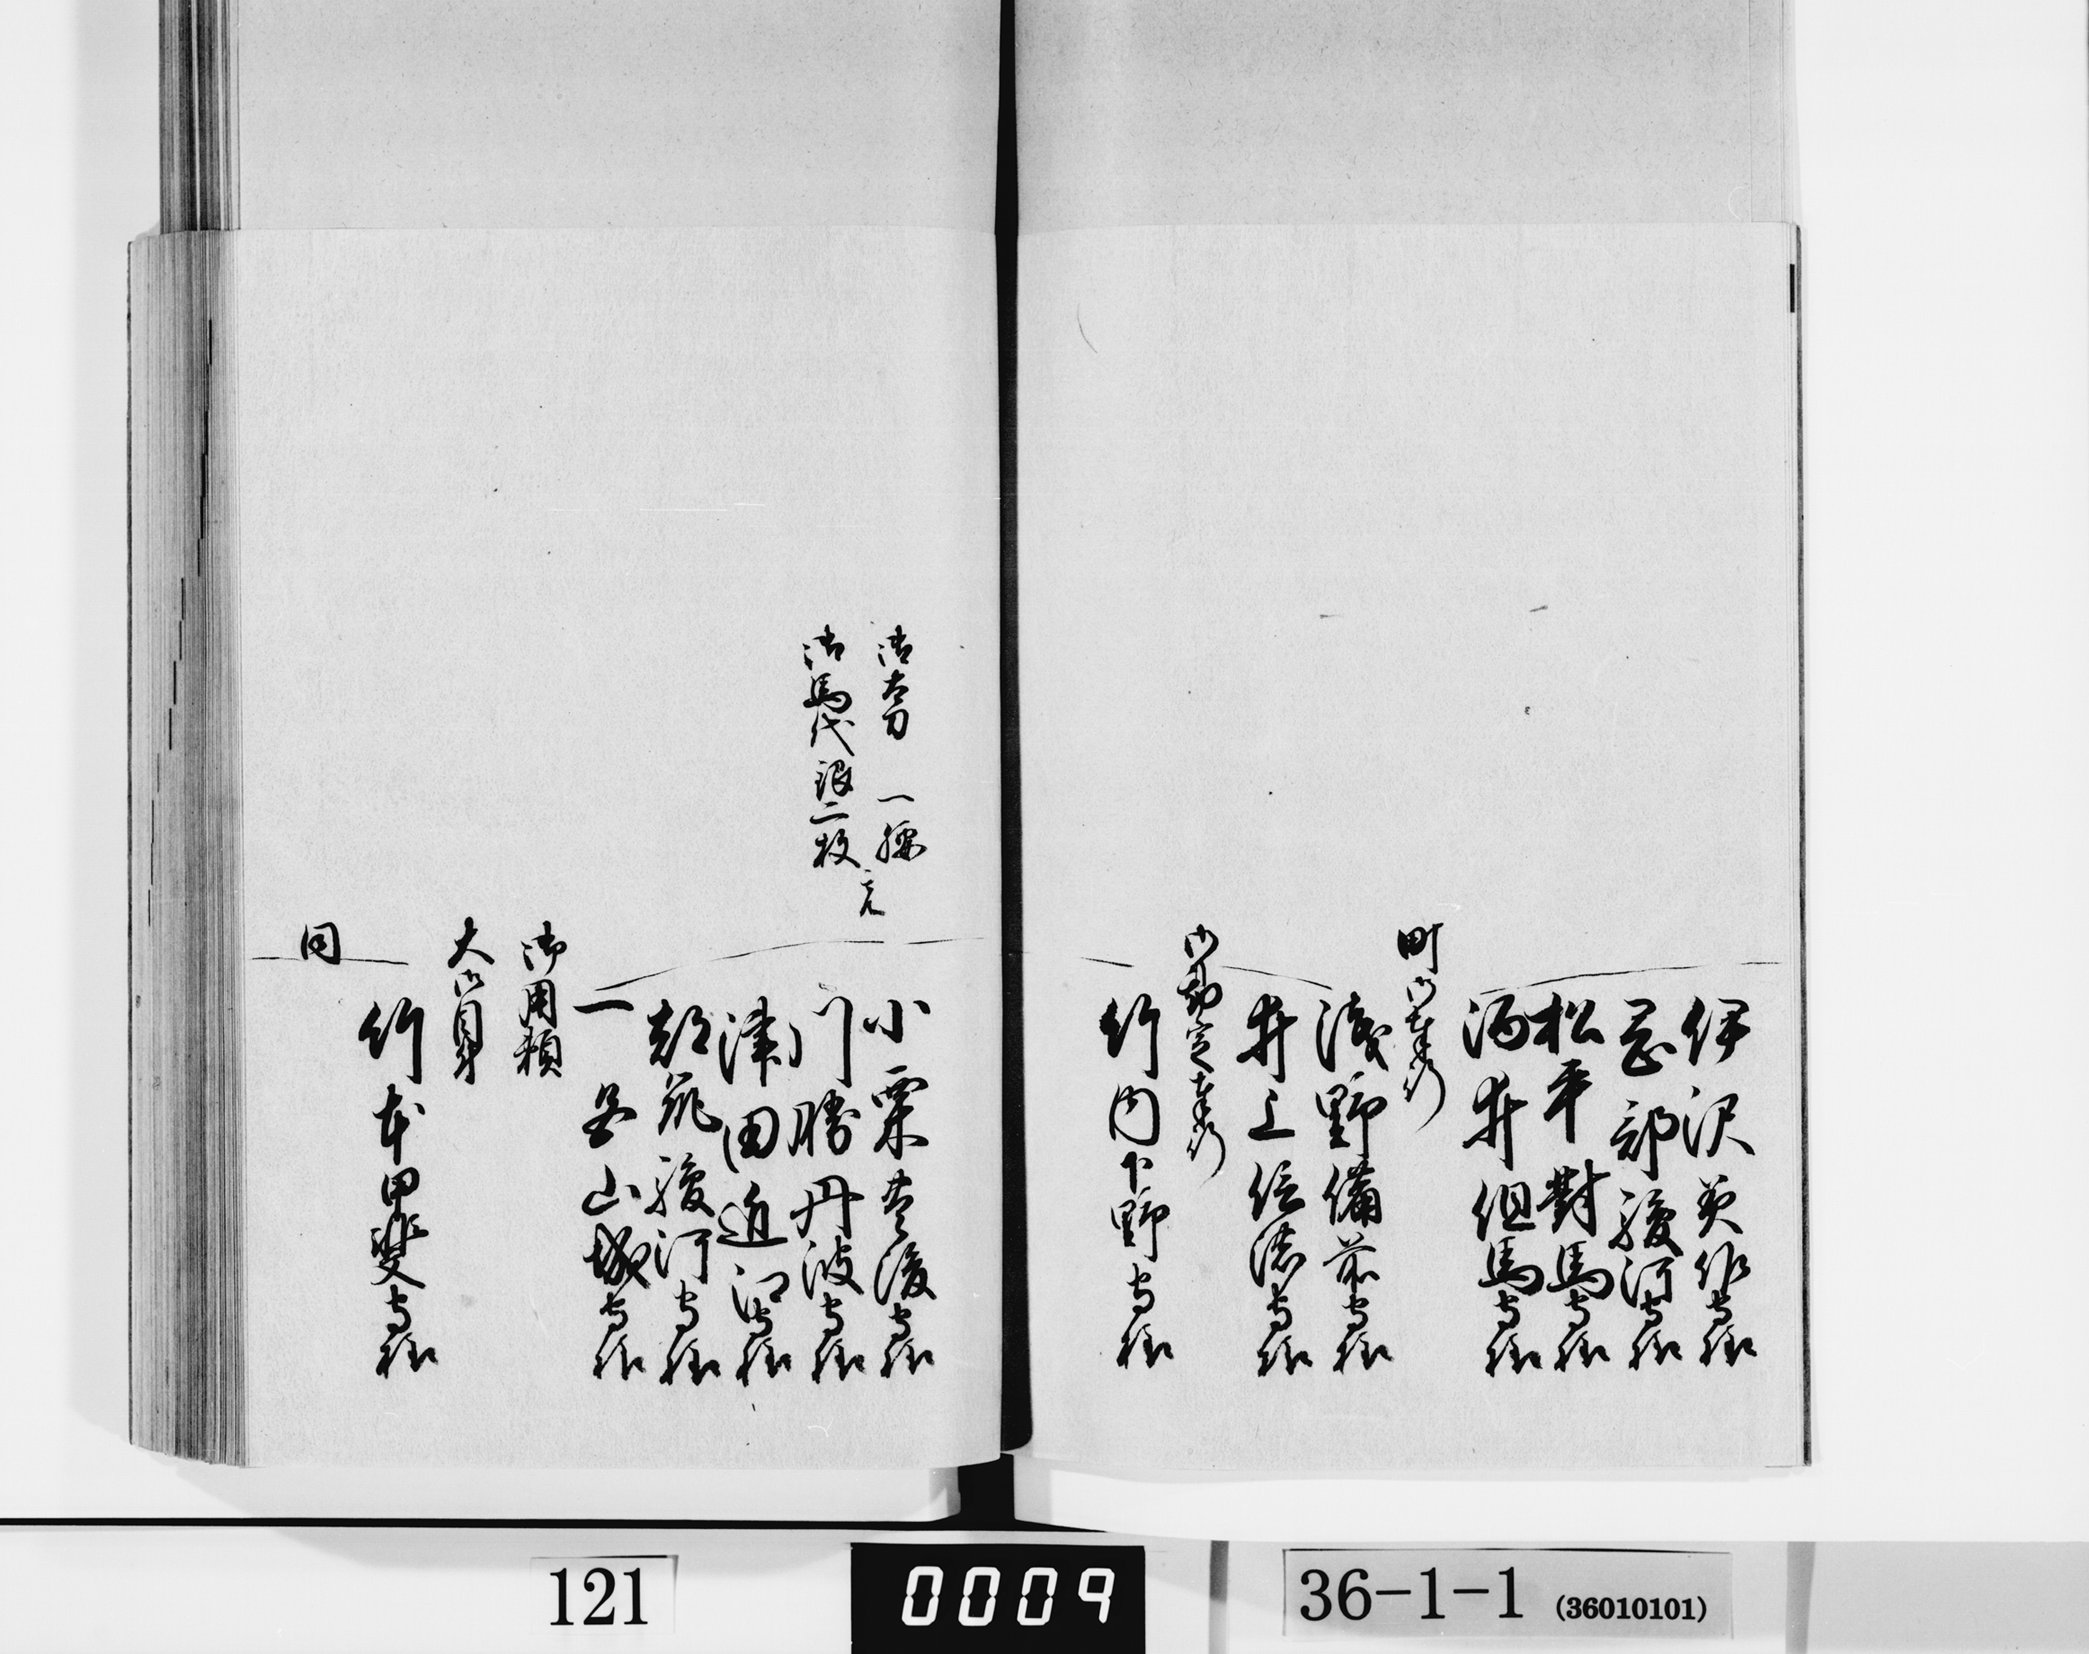 伊沢美作守様
岡部駿河守様
松平對馬守様
酒井但馬守様
町御奉行
浅野備前守様
井上信濃守様
御勘定奉行
竹内下野守様
御太刀 一腰
御馬代銀二枚 充
小栗豊後守様
川勝丹波守様
津田近江守様
都筑駿河守様
一色山城守様
御用頼
大御目付
竹本甲斐守様
同
121
0009
36-1-1 (36010101)